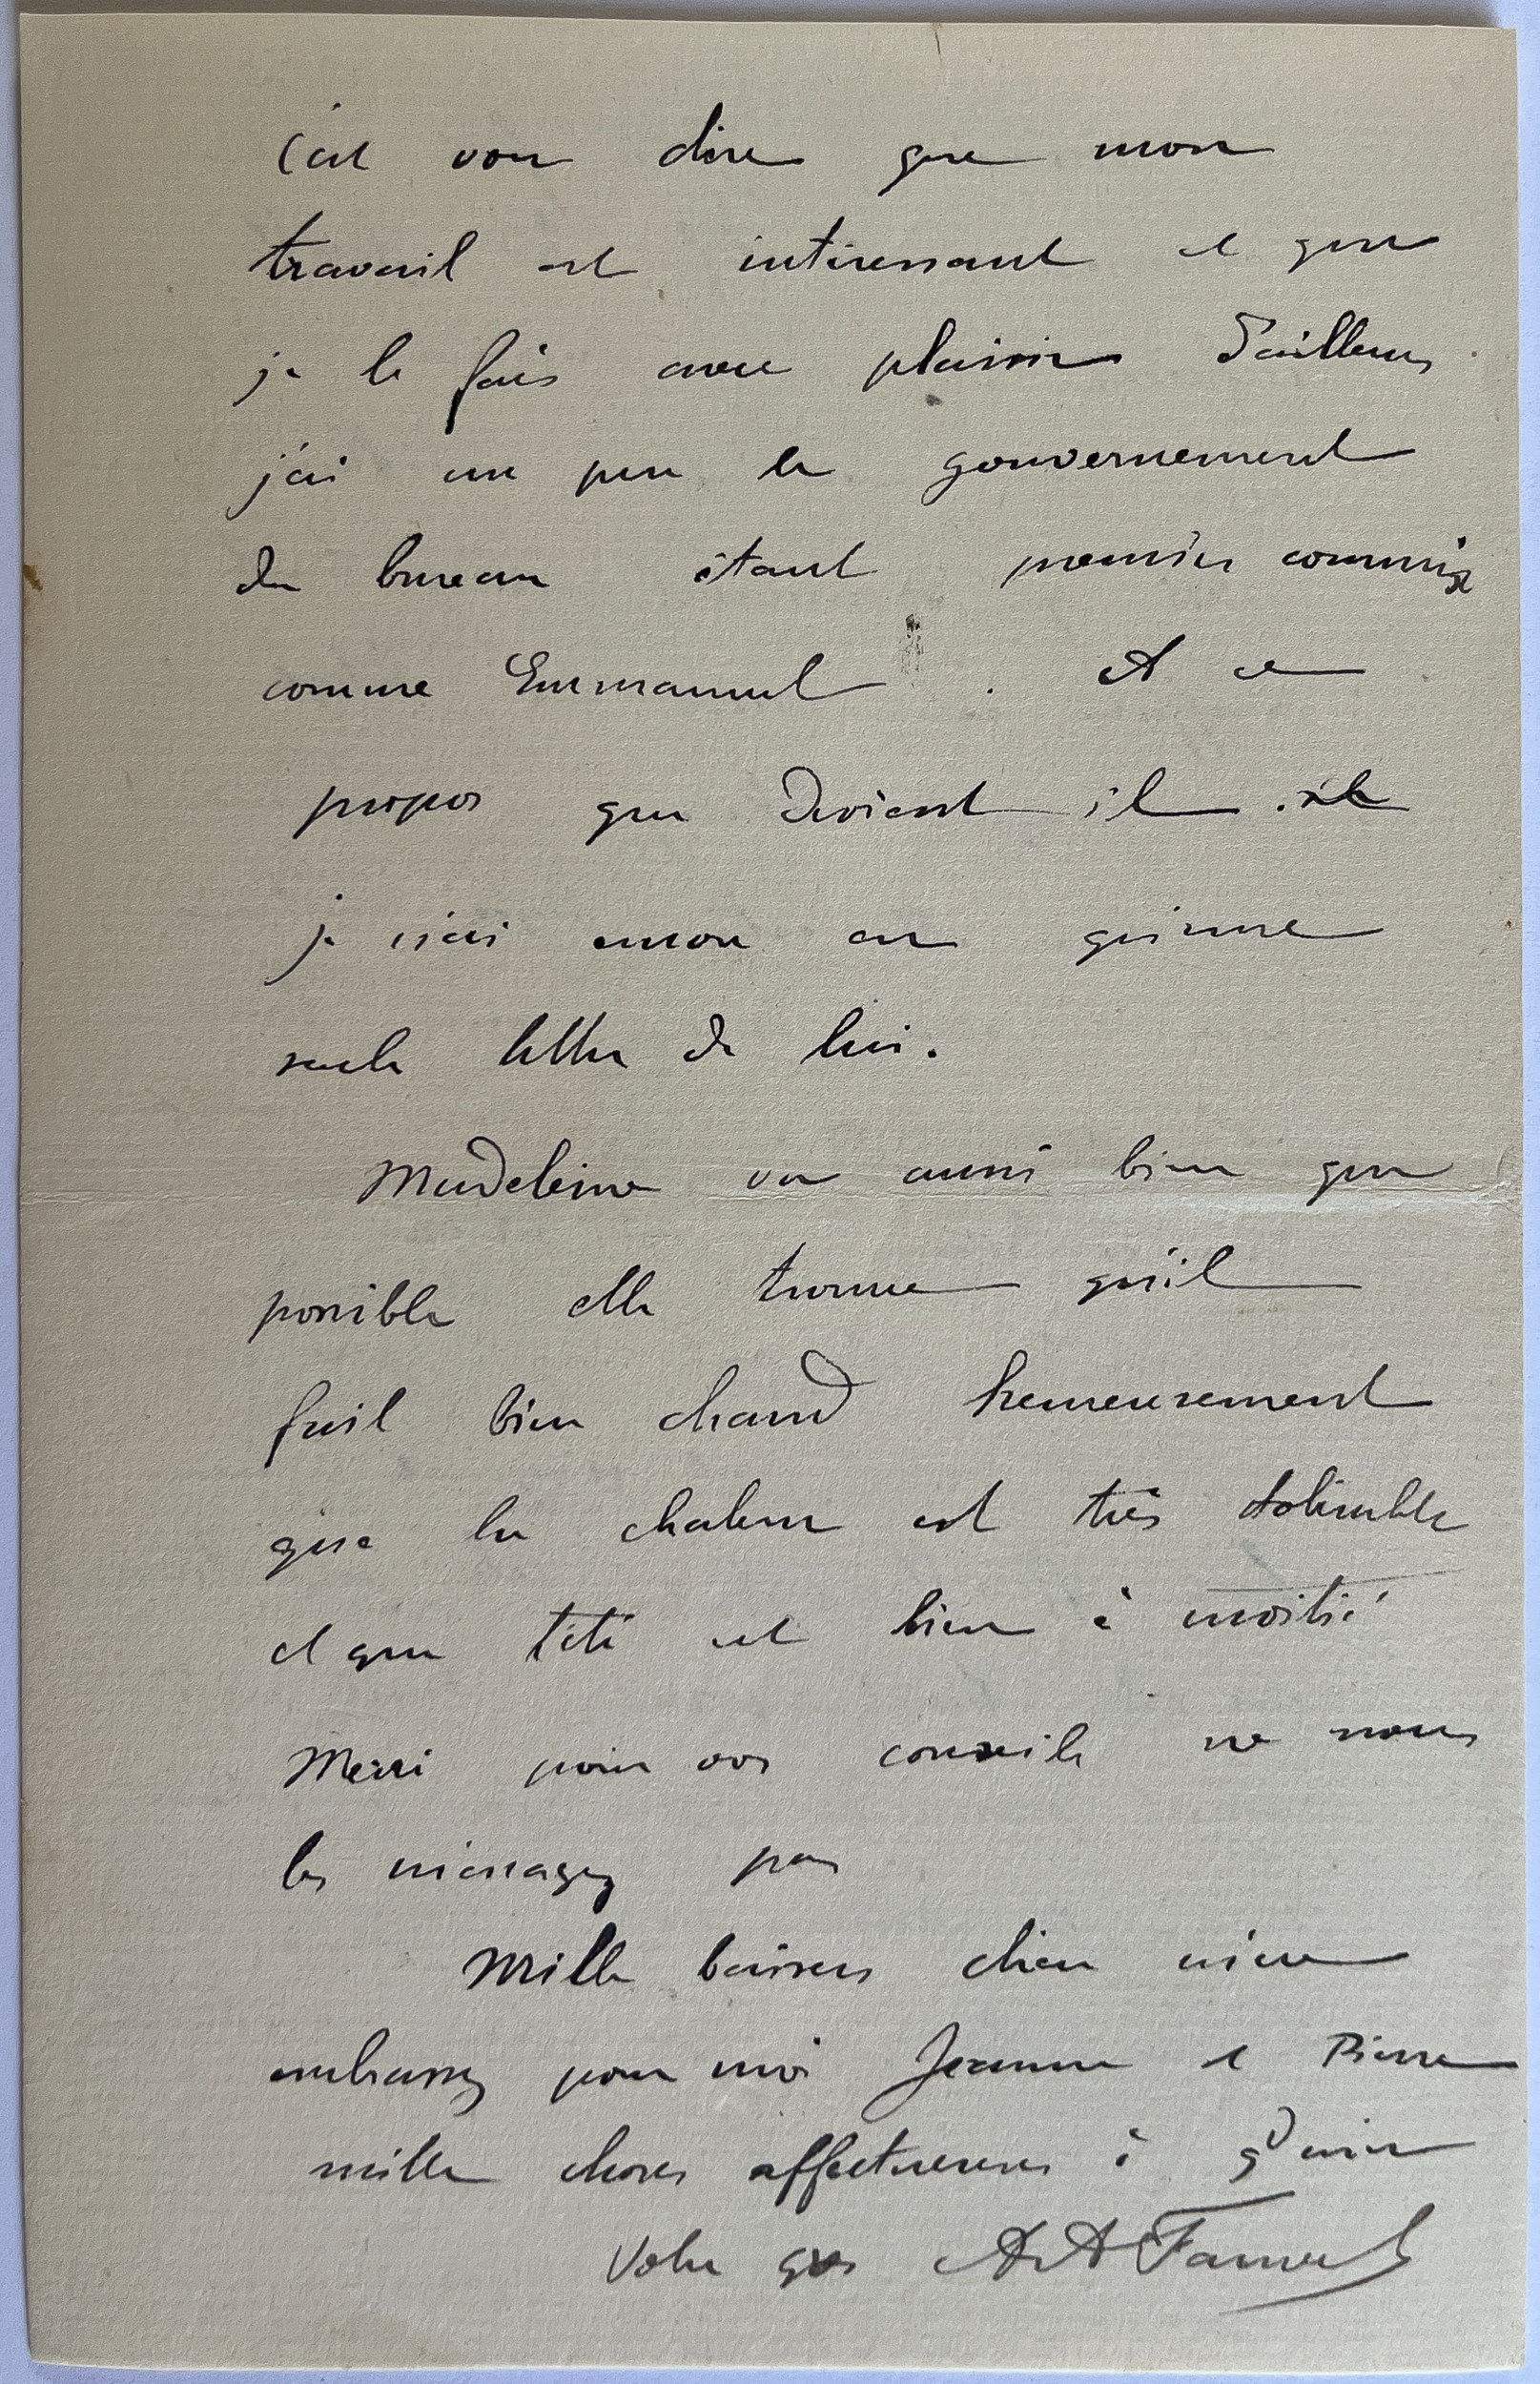 C'est vous dire que mon
travail est intéressant et que
je le fais avec plaisir D'ailleurs
j'ai un peu le gouvernement
du bureau étant premier commis
comme Emmanuel. A ce
propos que devient il
je n'ai encore eu qu'une
seule lettre de lui.
Madeleine va aussi bien que
possible elle trouve qu'il
fait bien chaud heureusement
que la chaleur est très tolérable
et que l'été est bien à moitié
Merci pour vos conseils ne nous
les ménagez pas
Mille baisers chère mère
embrassez pour moi Jeanne et Pierre
mille choses affectueuses à gd mère
Votre gros